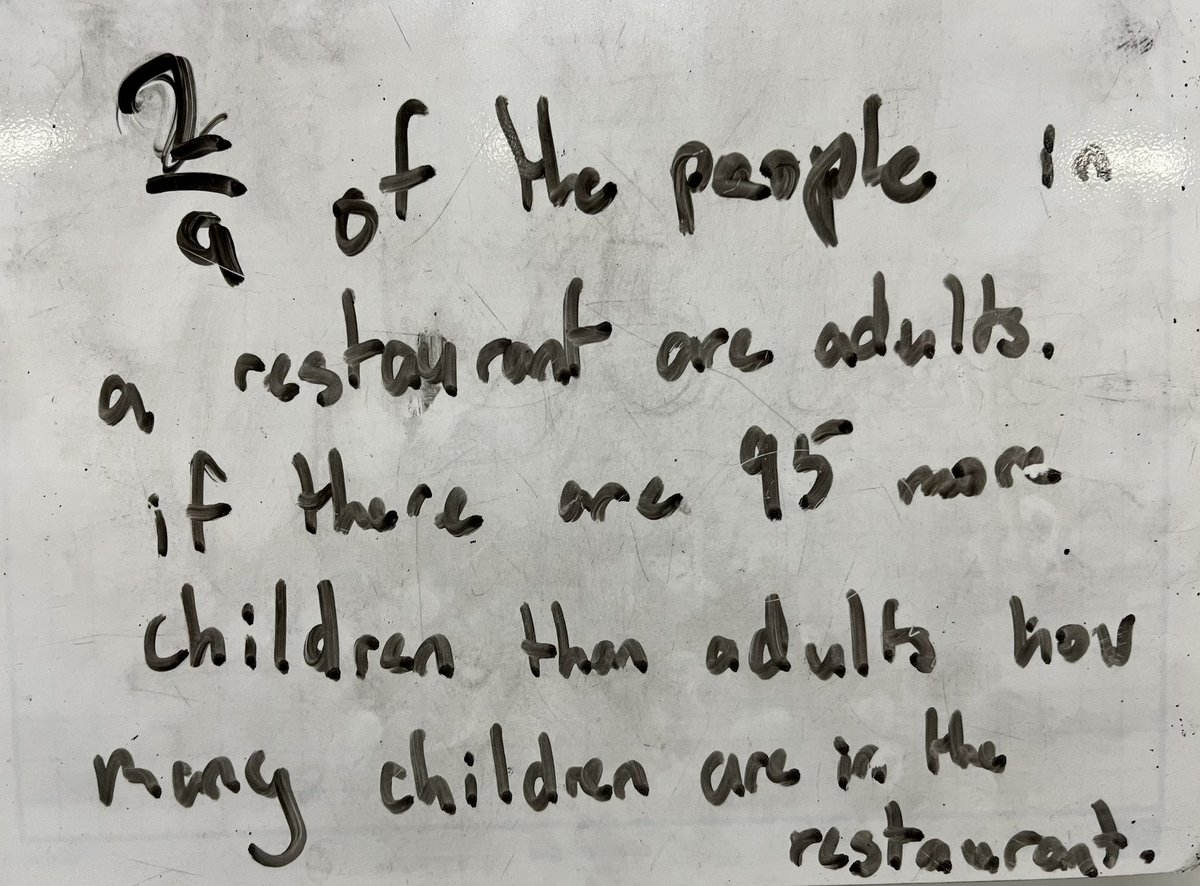 2/9 of the people in
a restaurant are adults.
if there are 95 more
children than adults how
many children are in the
restaurant.